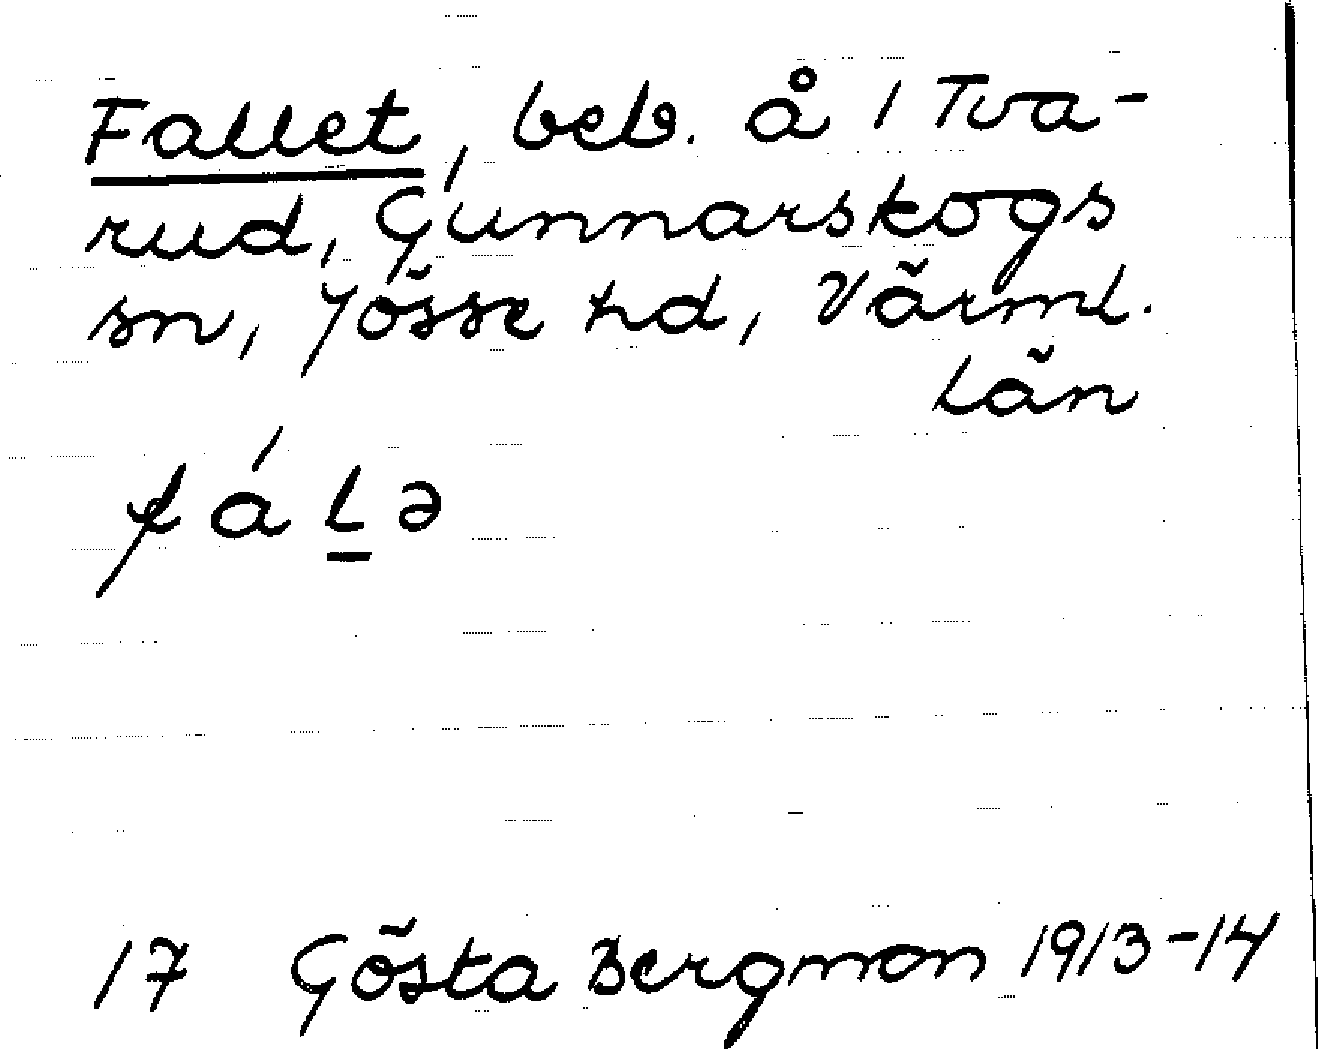 Fallet, beb. å 1 Tva-
rud, Gunnarskogs
sn, Jösse hd, Värml.
län
fáLə
17 Gösta Bergman 1913-14